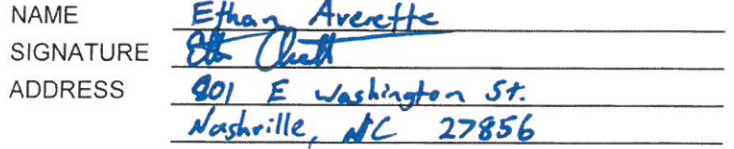 NAME Ethan Averette
SIGNATURE
ADDRESS 801 E Washington St.
Nashville, NC 27856